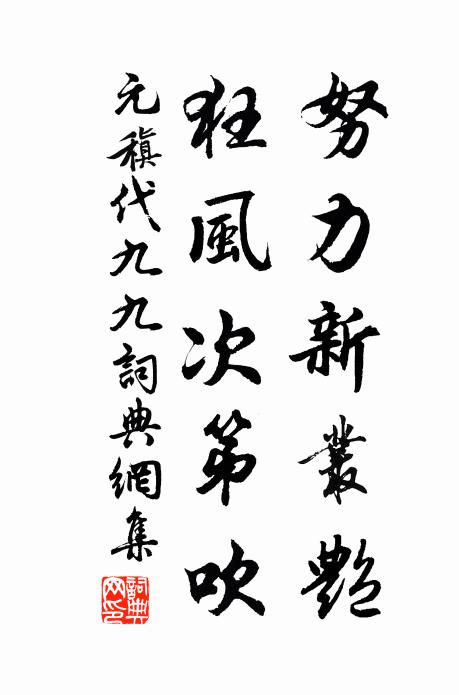 努力新叢艷
狂風次第吹
元稹代九九詞典網集
詞典網印